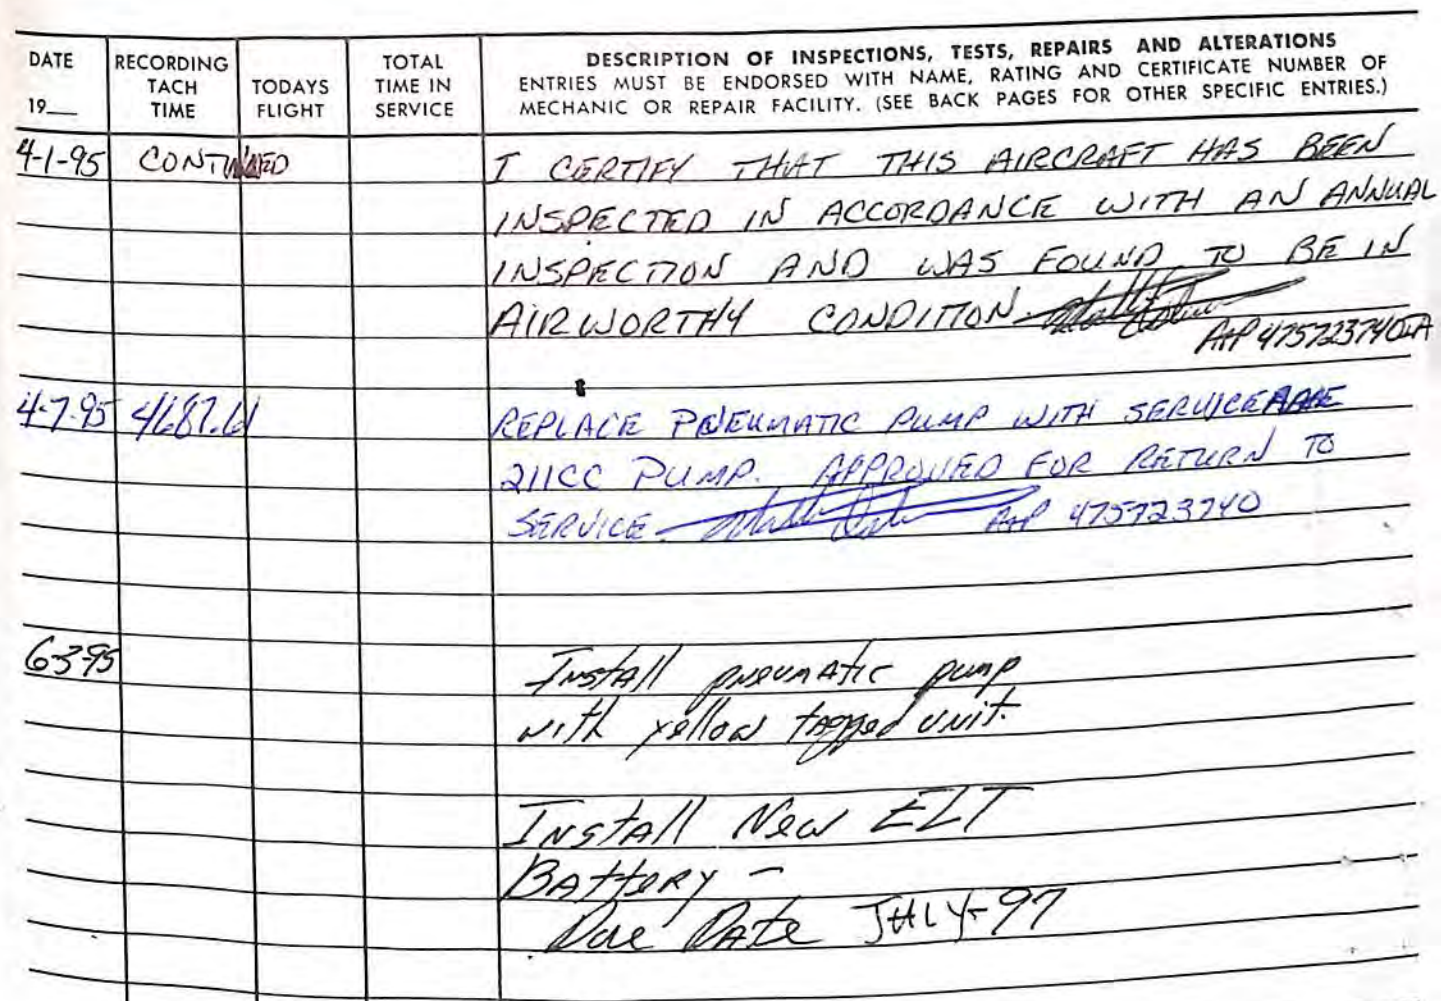 DATE
19__
RECORDING
TACH
TIME
TODAYS
FLIGHT
TOTAL
TIME IN
SERVICE
DESCRIPTION OF INSPECTIONS, TESTS, REPAIRS AND ALTERATIONS
ENTRIES MUST BE ENDORSED WITH NAME, RATING AND CERTIFICATE NUMBER OF
MECHANIC OR REPAIR FACILITY. (SEE BACK PAGES FOR OTHER SPECIFIC ENTRIES.)
4-1-95 CONTINUED I CERTIFY THAT THIS AIRCRAFT HAS BEEN
INSPECTED IN ACCORDANCE WITH AN ANNUAL
INSPECTION AND WAS FOUND TO BE IN
AIRWORTHY CONDITION.
A+P 475723740IA
4-7-95 4687.61 REPLACE PNEUMATIC PUMP WITH SERVICEABLE
211CC PUMP. APPROVED FOR RETURN TO
SERVICE A+P 475723740
6-3-95 Install pneumatic pump
with yellow tagged unit.
Install New ELT
Battery -
Due Date JULY-97